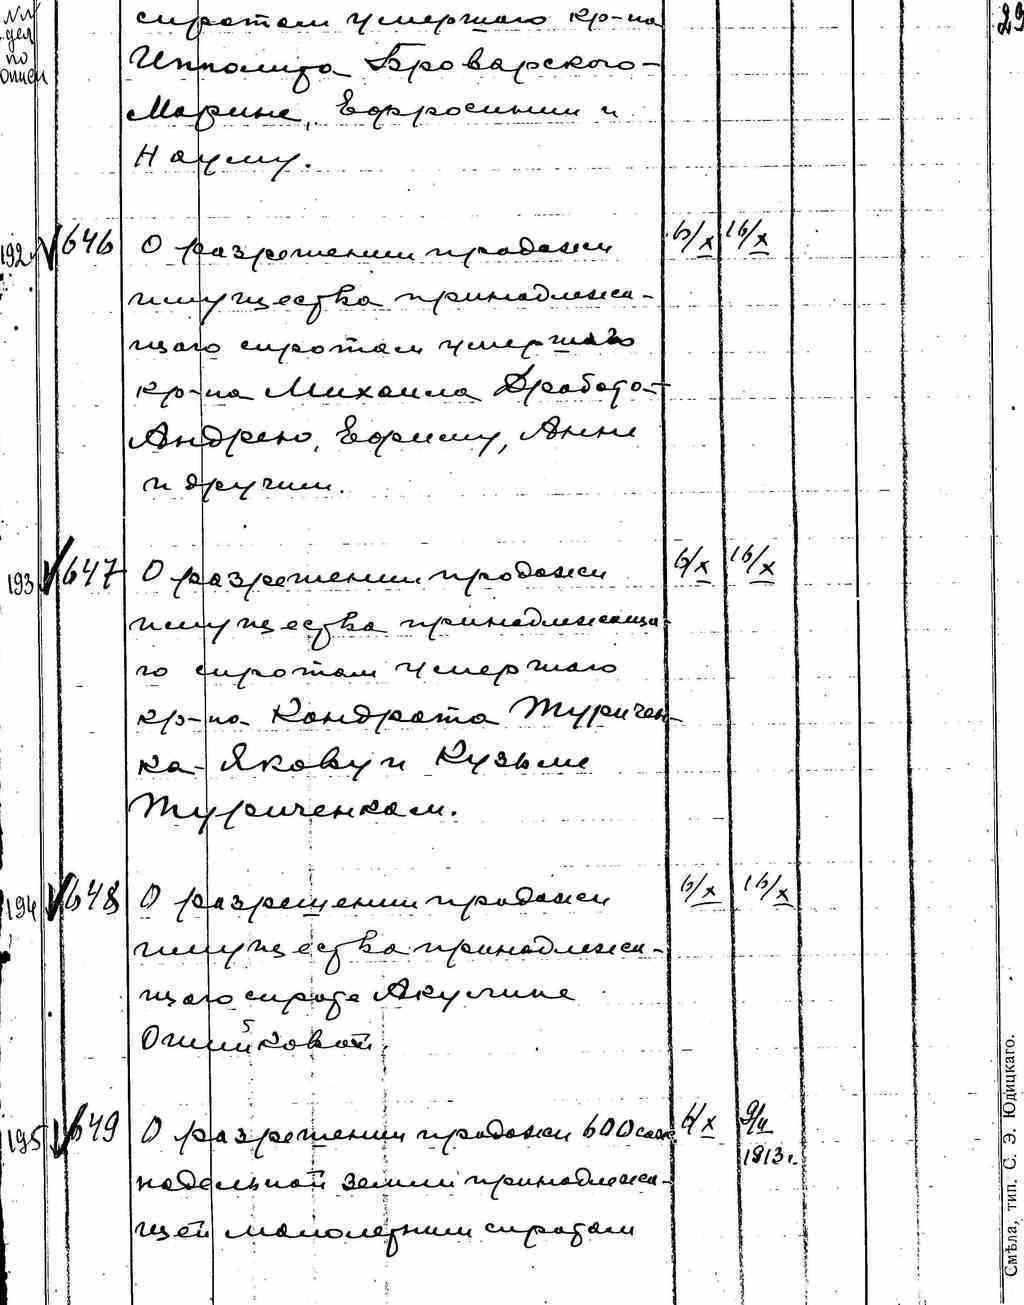 №№ дел по описи
29
сиротам умершаго кр-на
Ипполита Броварского-
Марине, Ефросинии и
Науму.
192 646 О разрешении продажи 6/X 16/X
имущества принадлежа-
щаго сиротам умершаго
кр-на Михаила Дробота-
Андрею, Ефиму, Анне
и другим.
193 647 О разрешении продажи 6/X 16/X
имущества принадлежаща-
го сиротам умершаго
кр-на Кондрата Туричен-
ка- Якову и Кузьме
Туриченкам.
194 648 О разрешении продажи 6/X 16/X
имущества принадлежа-
щаго сироте Акулине
195 649 О разрешении продажи 600 саж. 6/X 9/II 1913 г.
надельной земли принадлежа-
щей малолетним сиротам
Смѣла, тип. С. Э. Юдицкаго.